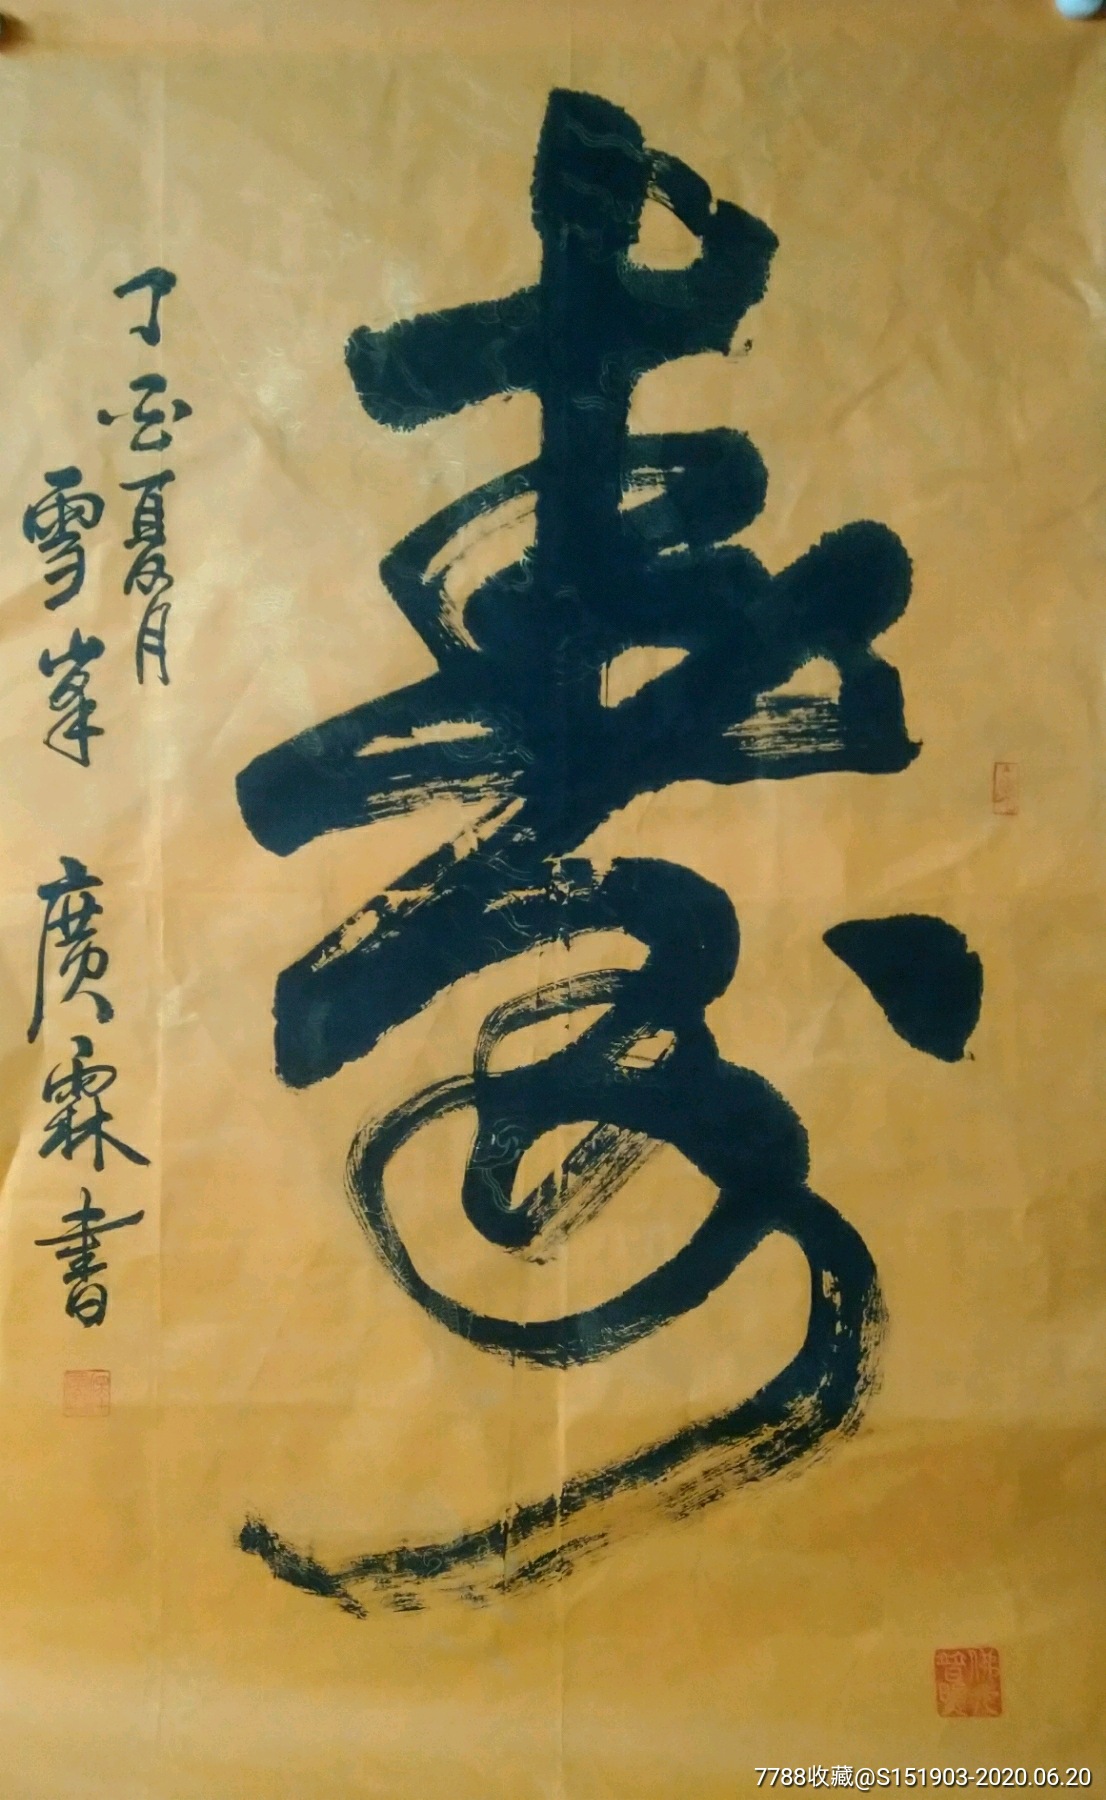 壽
丁酉夏月
雪峯 廣霖書
佛光普照
7788收藏@S151903-2020.06.20